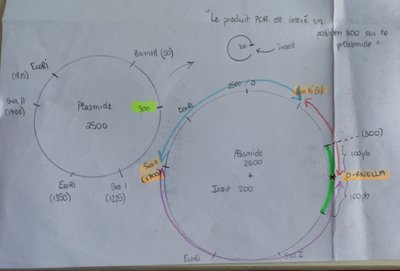 "Le produit PCR est inséré en
position 300 sur le
plasmide"
300
insert
BamHI (50)
EcoRI
(1875)
Sva II
(1700)
Plasmide
2500
300
EcoRI
(1350)
Sva I
(1225)
2500/0
BamHI (50)
EcoRI
Sva II
(1700)
Plasmide
2500
+
Insert 200
(300)
100pb
O-RNELLA
100pb
EcoRI
Sva I